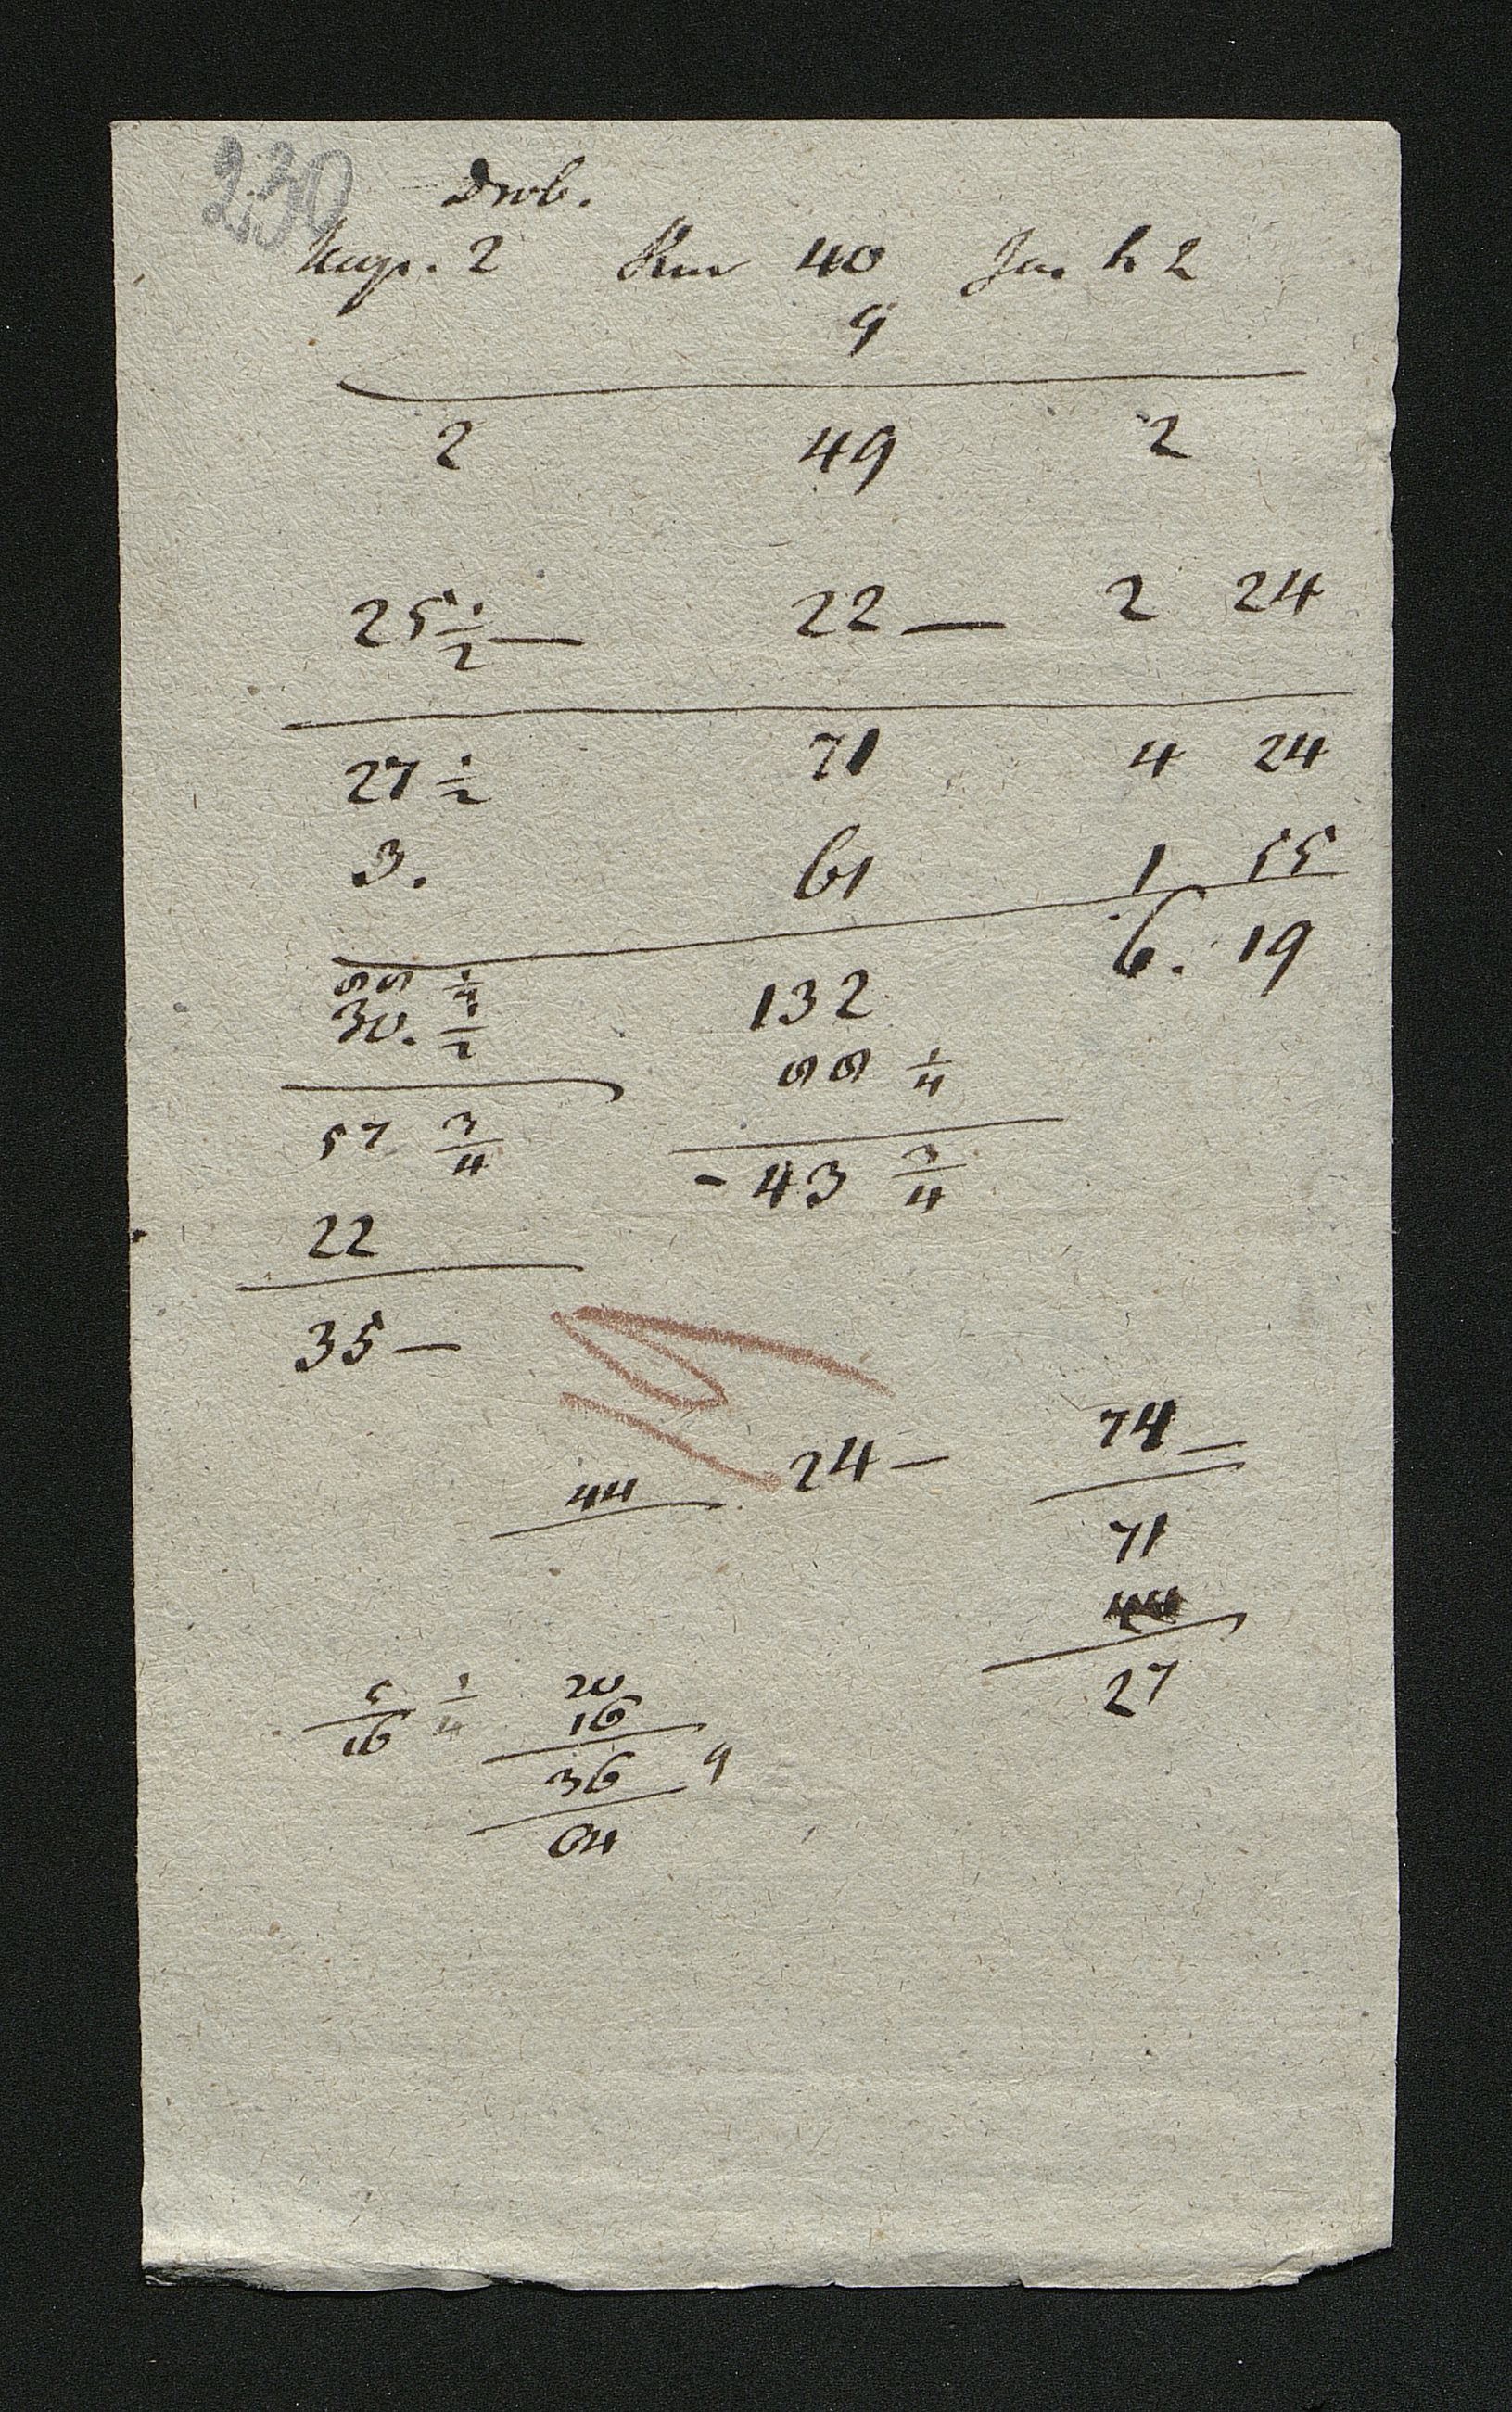 230 Drob.
2 40 2
9
2 49 2
25 1/2 — 22 — 2 24
27 1/2 71 4 24
3. 61 1 55
6. 19
88 1/4
30. 1/2 132
88 1/4
57 3/4
- 43 3/4
22
35 —
74 —
44 24 —
71
44
27
5/16 1/4 20
16
36 9
04